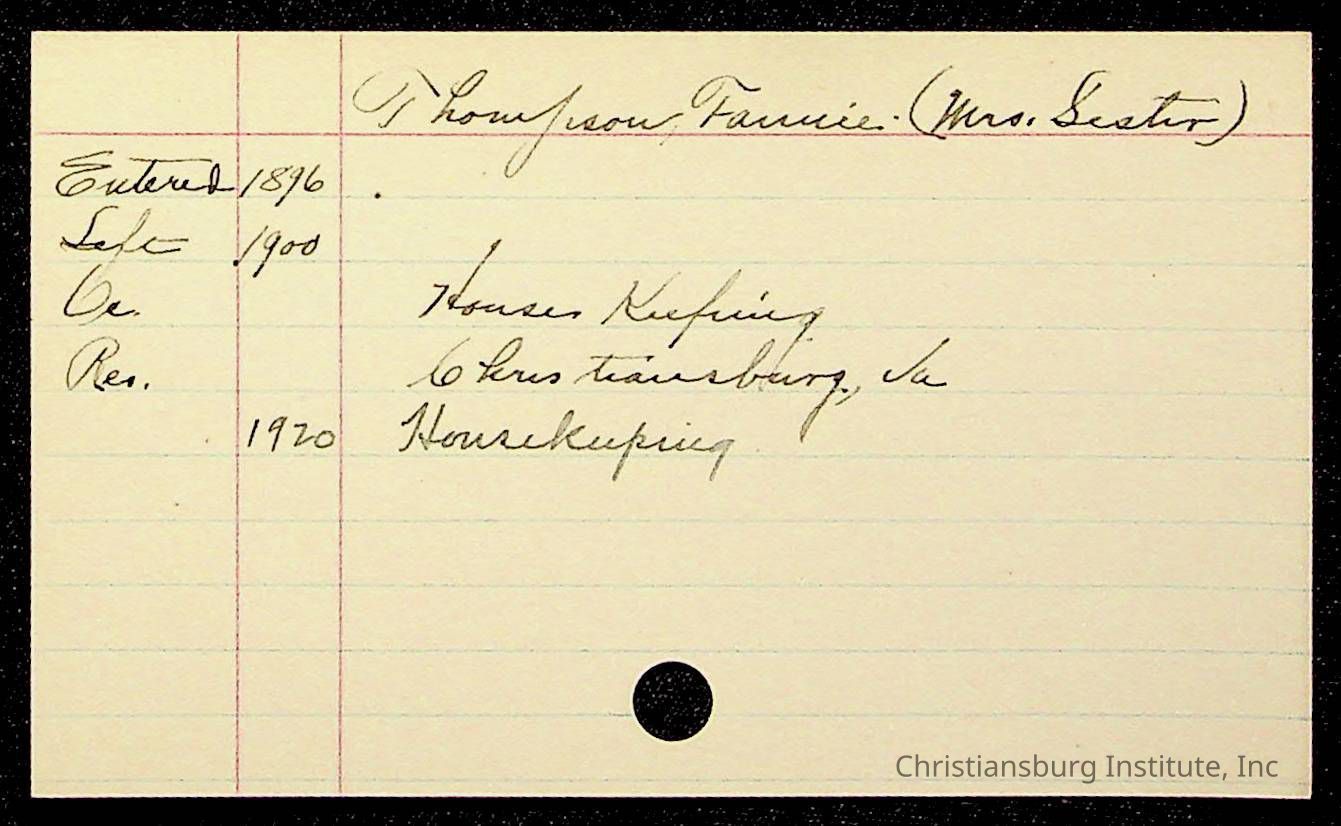 Thompson, Fannie. (Mrs. Sester)
Entered 1896
Left 1900
Oc. Houses Keeping
Res. Christiansburg, Va
1920 Housekeeping
Christiansburg Institute, Inc